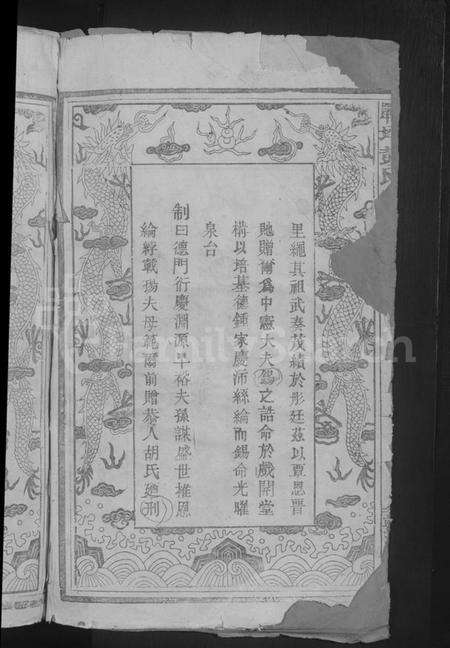 里繩其祖武奏茂績於彤廷茲以覃恩晉
貤贈爾爲中憲大夫錫之誥命於戲開堂
構以培基德鍾家慶沛絲綸而錫命光曜
泉台
制曰德門衍慶淵源早裕夫孫謀盛世推恩
綸綍載揚夫母範爾前贈恭人胡氏
FamilySearch